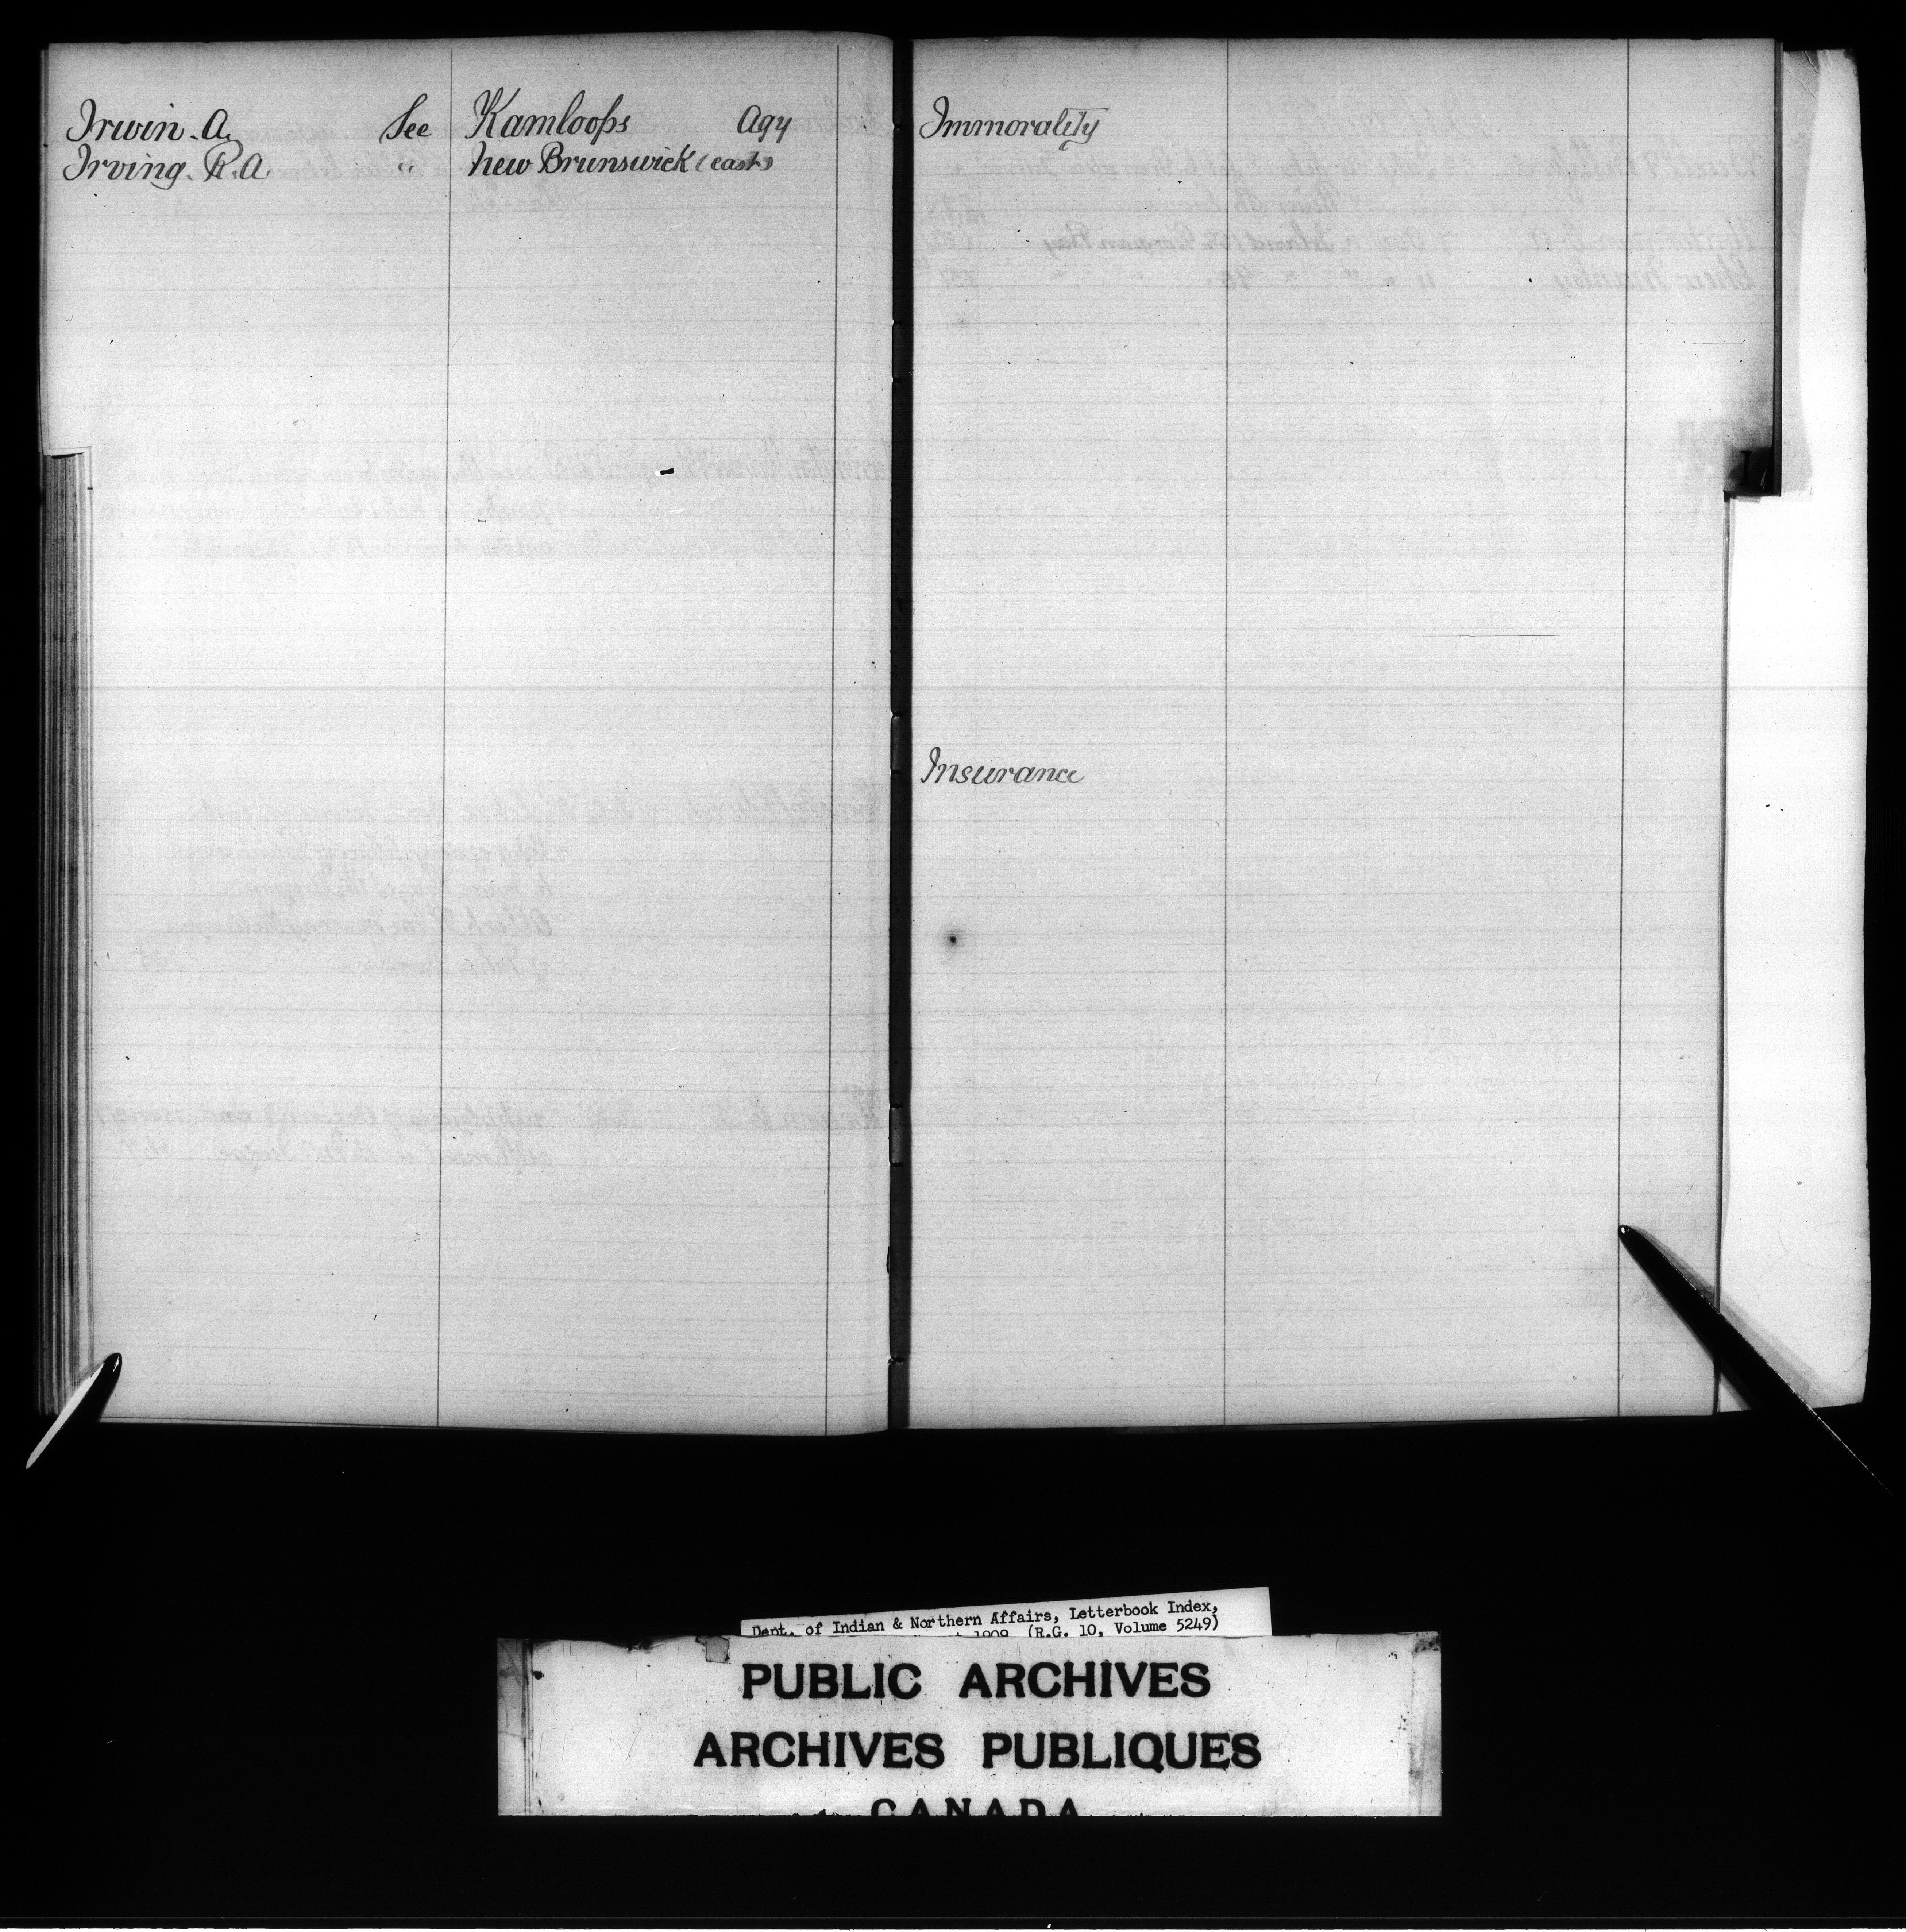 Irwin. A. See Kamloops Agy
Irving. R. A " New Brunswick (east)
Immorality
Insurance
I
Dept. of Indian & Northern Affairs, Letterbook Index,
1909 (R.G. 10, Volume 5249)
PUBLIC ARCHIVES
ARCHIVES PUBLIQUES
CANADA